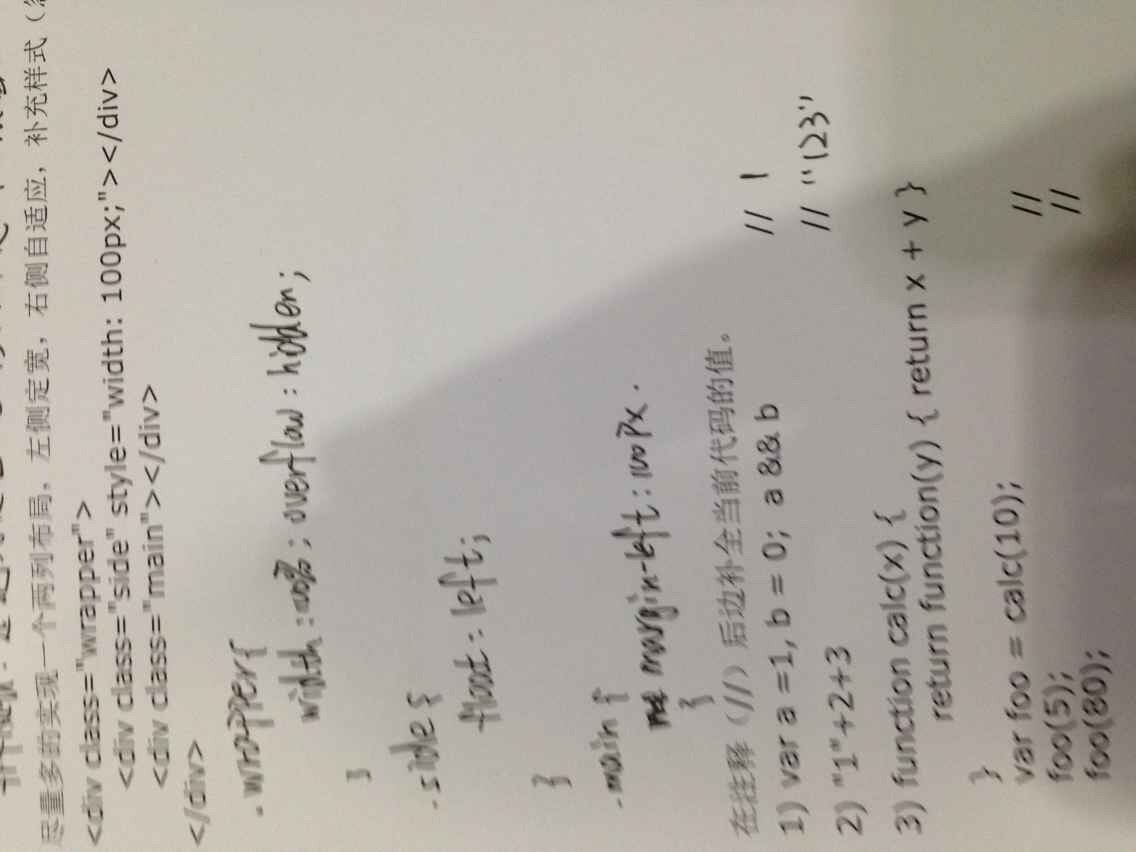 尽量多的实现一个两列布局，左侧定宽，右侧自适应，补充样式（
<div class="wrapper">
<div class="side" style="width: 100px;"></div>
<div class="main"></div>
</div>
.wrapper{
width:100%; overflow: hidden;
}
.side {
float: left;
}
.main {
margin-left: 100px.
}
在注释（//）后边补全当前代码的值。
1) var a =1, b = 0; a && b // 1
2) "1"+2+3 // "123"
3) function calc(x) {
return function(y) { return x + y }
}
var foo = calc(10);
foo(5); //
foo(80); //